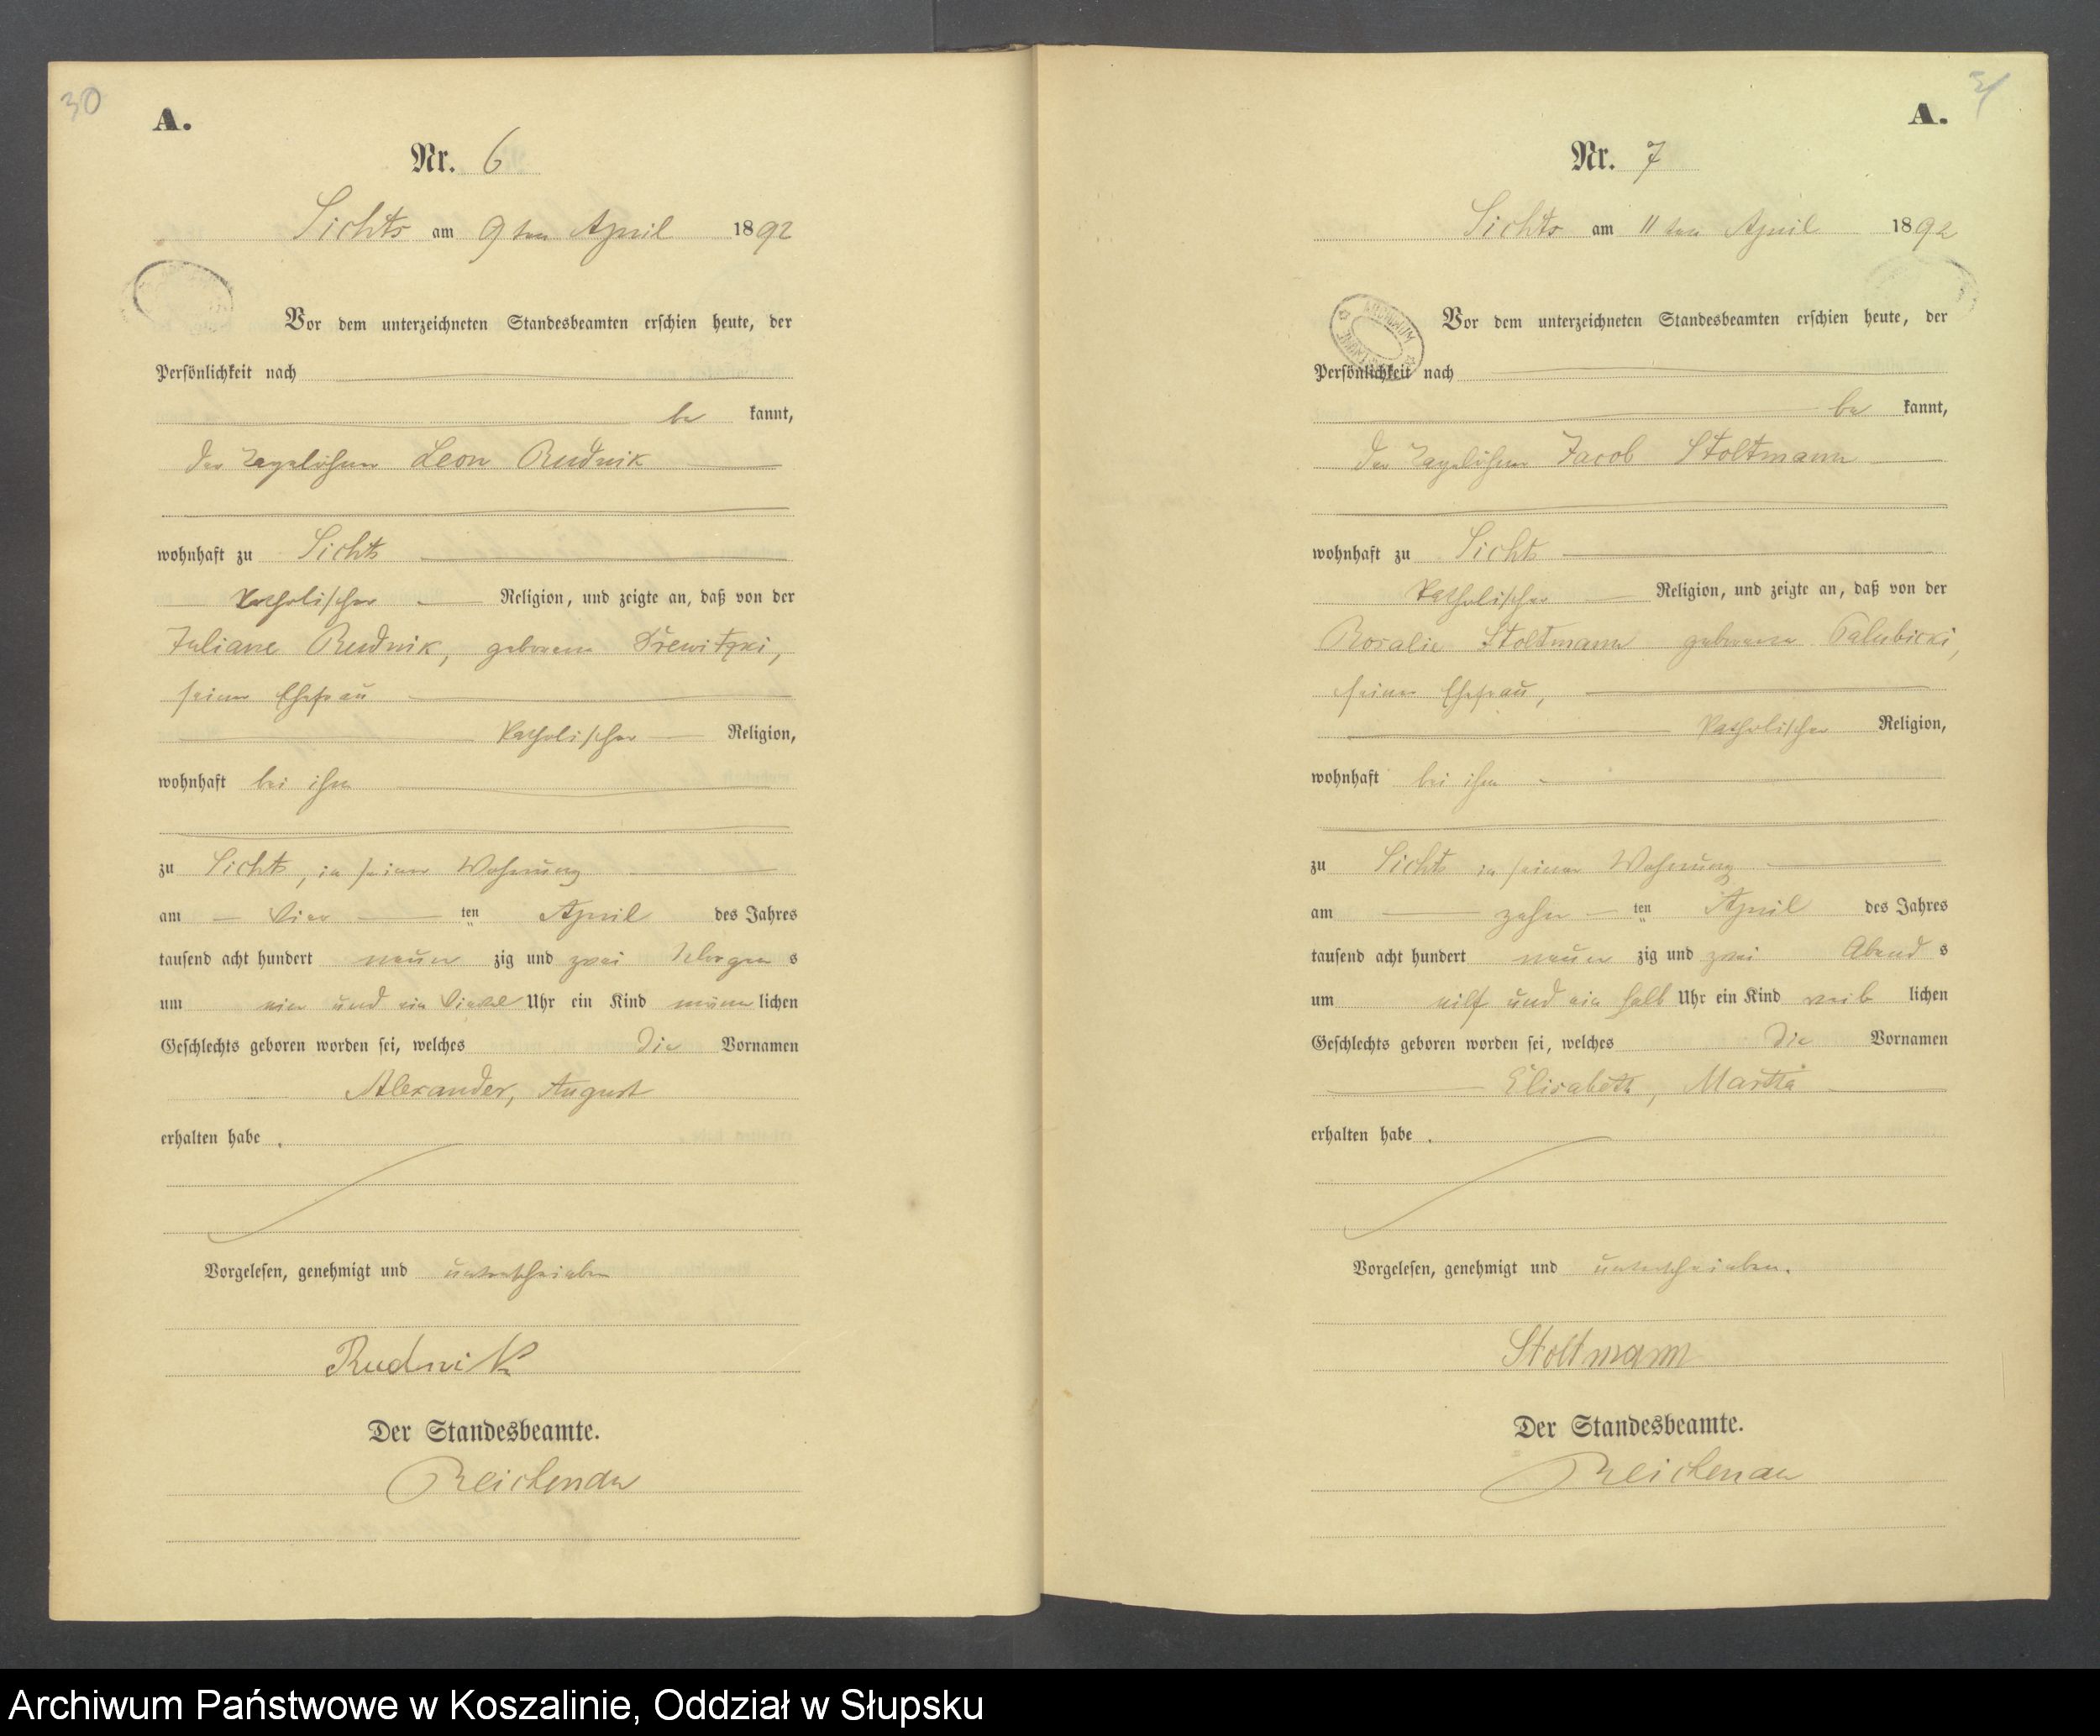 30
A.
Nr. 6
Sichts am 9ten April 1892
Vor dem unterzeichneten Standesbeamten erschien heute, der
Persönlichkeit nach
be kannt,
der Tagelöhner Leon Rudnik
wohnhaft zu Sichts
katholischer Religion, und zeigte an, daß von der
Juliane Rudnik, geborene Drewitzki,
seiner Ehefrau
katholischer Religion,
wohnhaft bei ihm
zu Sichts, in seiner Wohnung
am vier ten April des Jahres
tausend acht hundert neun zig und zwei Morgen s
um ein und ein Viertel Uhr ein Kind männ lichen
Geschlechts geboren worden sei, welches die Vornamen
Alexander, August
erhalten habe.
Vorgelesen, genehmigt und unterschrieben
Rudnik
Der Standesbeamte.
Reichenau
31
A.
Nr. 7
Sichts am 11ten April 1892
Vor dem unterzeichneten Standesbeamten erschien heute, der
Persönlichkeit nach
be kannt,
der Tagelöhner Jacob Stoltmann
wohnhaft zu Sichts
katholischer Religion, und zeigte an, daß von der
Rosalie Stoltmann geborene Palubicki,
seiner Ehefrau,
katholischer Religion,
wohnhaft bei ihm
zu Sichts in seiner Wohnung
am zehn ten April des Jahres
tausend acht hundert neun zig und zwei Abend s
um elf und ein halb Uhr ein Kind weib lichen
Geschlechts geboren worden sei, welches die Vornamen
Elisabeth, Martha
erhalten habe.
Vorgelesen, genehmigt und unterschrieben.
Stoltmann
Der Standesbeamte.
Reichenau
Archiwum Państwowe w Koszalinie, Oddział w Słupsku